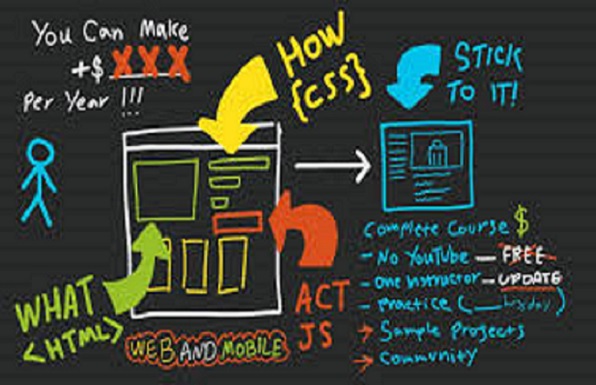 You Can Make
+$ XXX
Per Year !!!
HOW
{CSS}
STICK
TO IT!
WHAT
<HTML>
ACT
JS
WEB AND MOBILE
Complete Course $
- No YouTube — FREE
- One instructor — UPDATE
- Practice ( )
→ Sample Projects
→ Community